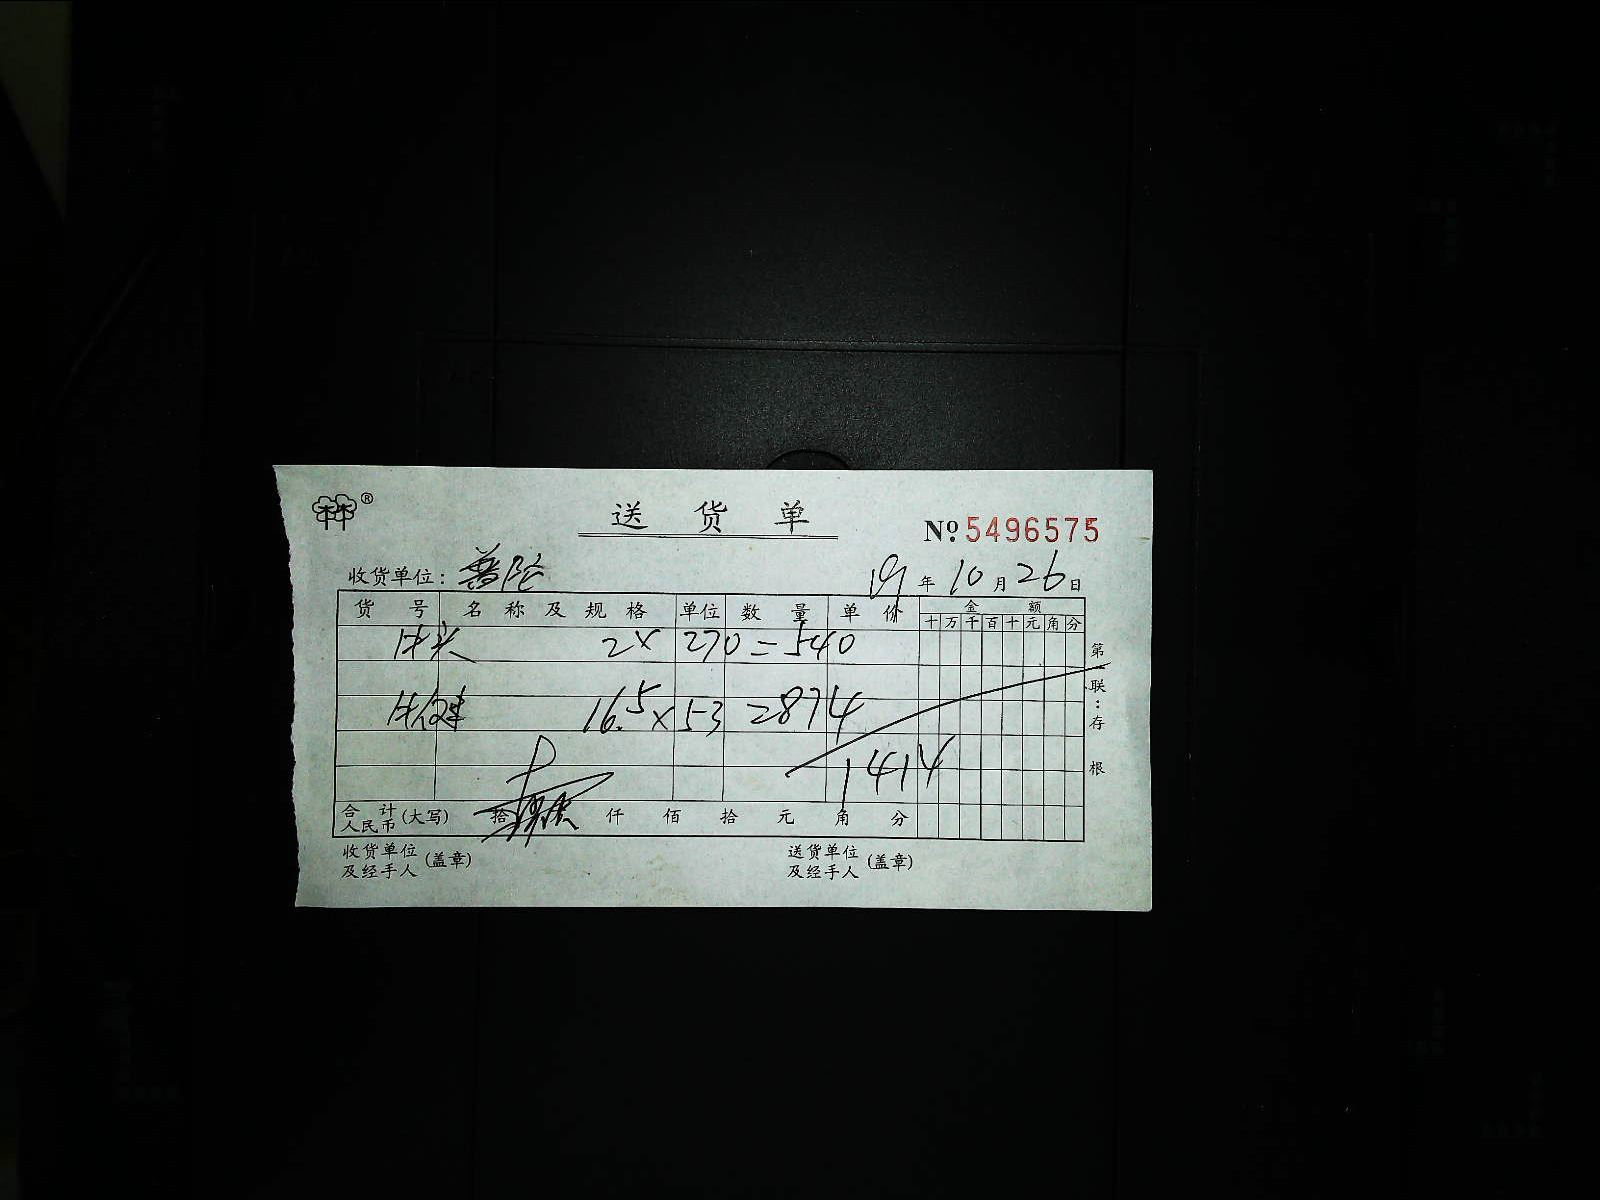 ®
送 货 单
№ 5496575
收货单位: 普陀 19年 10月 26日
货 号 名 称 及 规 格 单位 数 量 单 价 金 额
十 万 千 百 十 元 角 分
牛头 2× 270=540
牛健 16.5×53 = 874
1414
合 计
人民币 (大写) 拾 仟 佰 拾 元 角 分
收货单位
及经手人 (盖章)
送货单位
及经手人 (盖章)
第一联:存根